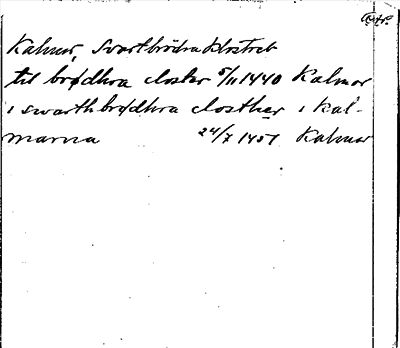 Kalmar, Svartbrödraklostret
til brødhra closter 5/11 1440 Kalmar
i swarthbrødhra closther i Kal-
marna 24/7 1451 Kalmar